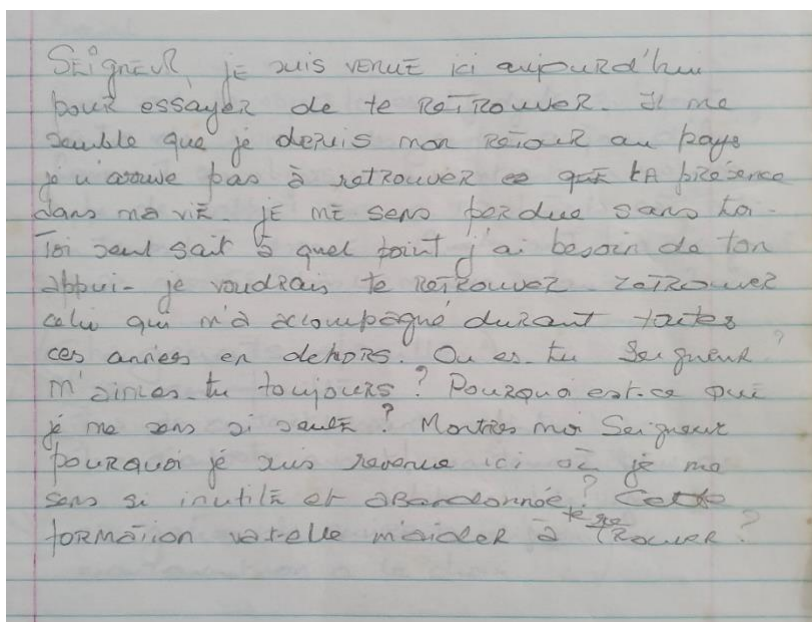 Seigneur, je suis venue ici aujourd'hui
pour essayer de te retrouver. Il me
semble que je depuis mon retour au pays
je n'arrive pas à retrouver ce que ta présence
dans ma vie. Je me sens perdue sans toi.
Toi seul sait à quel point j'ai besoin de ton
appui - je voudrais te retrouver. retrouver
celui qui m'a accompagné durant toutes
ces années en dehors. Ou es-tu Seigneur ?
M'aimes-tu toujours ? Pourquoi est-ce que
je me sens si seule ? Montres moi Seigneur
pourquoi je suis revenue ici où je me
sens si inutile et abandonnée ? Cette
formation va-t-elle m'aider à te retrouver ?